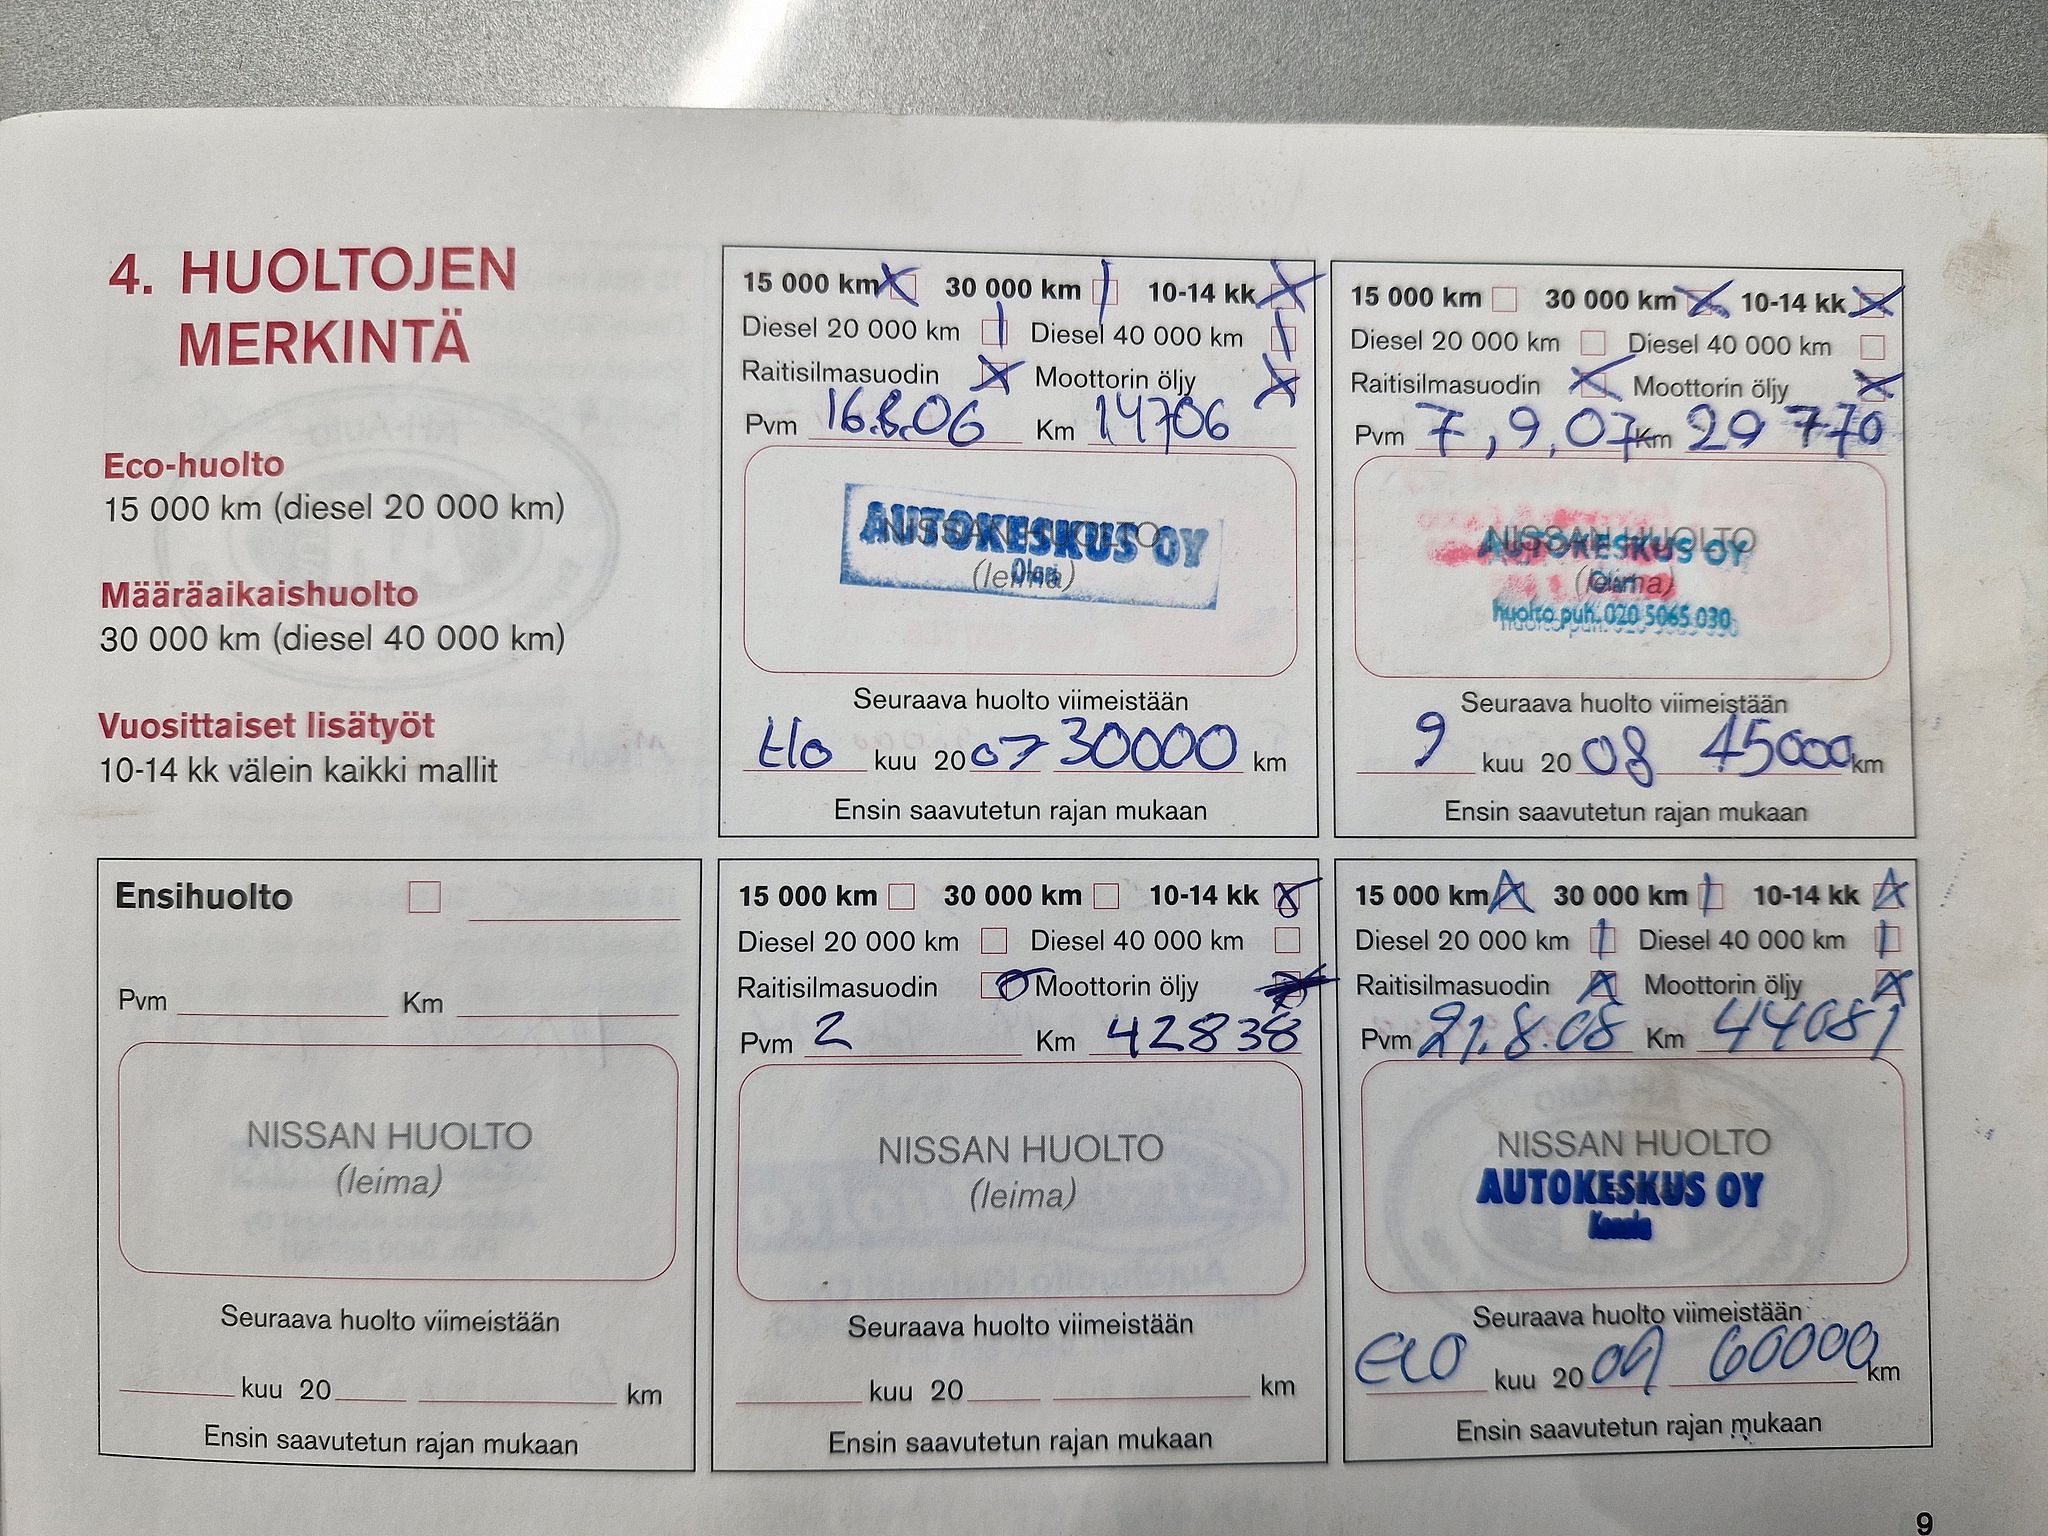 4. HUOLTOJEN
MERKINTÄ
Eco-huolto
15 000 km (diesel 20 000 km)
Määräaikaishuolto
30 000 km (diesel 40 000 km)
Vuosittaiset lisätyöt
10-14 kk välein kaikki mallit
15 000 km 30 000 km 10-14 kk
Diesel 20 000 km Diesel 40 000 km
Raitisilmasuodin Moottorin öljy
Pvm 16.8.06 Km 14706
NISSAN HUOLTO
AUTOKESKUS OY
(leima)
Olari
Seuraava huolto viimeistään
elo kuu 2007 30000 km
Ensin saavutetun rajan mukaan
15 000 km 30 000 km 10-14 kk
Diesel 20 000 km Diesel 40 000 km
Raitisilmasuodin Moottorin öljy
Pvm 7,9,07 Km 29770
NISSAN HUOLTO
AUTOKESKUS OY
(leima)
Olari
huolto puh. 020 5065 030
Seuraava huolto viimeistään
9 kuu 2008 45000 km
Ensin saavutetun rajan mukaan
Ensihuolto
Pvm Km
NISSAN HUOLTO
(leima)
Seuraava huolto viimeistään
kuu 20 km
Ensin saavutetun rajan mukaan
15 000 km 30 000 km 10-14 kk
Diesel 20 000 km Diesel 40 000 km
Raitisilmasuodin Moottorin öljy
Pvm 2 Km 42838
NISSAN HUOLTO
(leima)
Seuraava huolto viimeistään
kuu 20 km
Ensin saavutetun rajan mukaan
15 000 km 30 000 km 10-14 kk
Diesel 20 000 km Diesel 40 000 km
Raitisilmasuodin Moottorin öljy
Pvm 21.8.08 Km 44081
NISSAN HUOLTO
AUTOKESKUS OY
Seuraava huolto viimeistään
elo kuu 2009 60000 km
Ensin saavutetun rajan mukaan
9